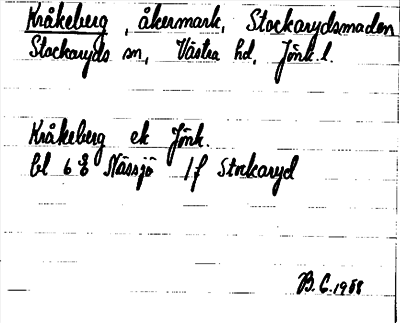 Kråkeberg, åkermark, Stockarydsmaden
Stockaryds sn, Västra hd, Jönk.l.
Kråkeberg ek Jönk.
bl 6 E Nässjö 1f Stockaryd
B.G. 1958